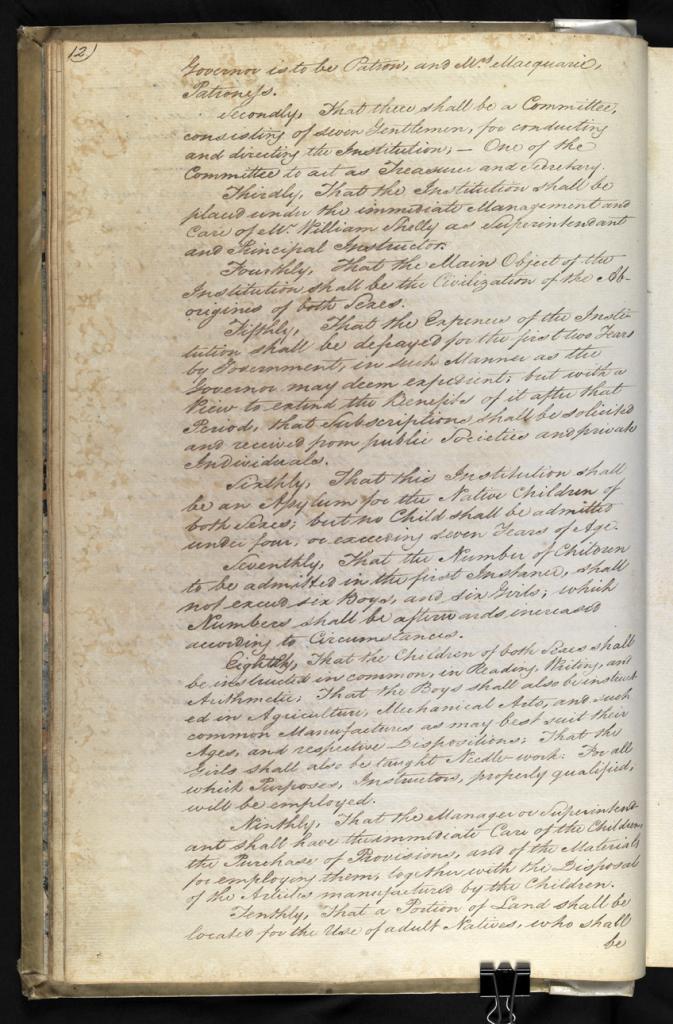 12)
Governor is to be Patron, and Mrs. Macquarie,
Patroness.
Secondly, That there shall be a Committee,
consisting of seven Gentlemen, for conducting
and directing the Institution; — One of the
Committee to act as Treasurer and Secretary.
Thirdly, That the Institution shall be
placed under the immediate Management and
Care of Mr. William Shelly as Superintendant
and Principal Instructor.
Fourthly, That the Main Object of the
Institution shall be the Civilization of the Ab-
origines of both Sexes.
Fifthly, That the Expences of the Insti-
tution shall be defrayed for the first two Years
by Government, in such Manner as the
Governor may deem expedient; but with a
View to extend the Benefits of it after that
Period, that Subscriptions shall be solicited
and received from public Societies and private
Individuals.
Sixthly, That this Institution shall
be an Asylum for the Native Children of
both Sexes; but no Child shall be admitted
under four, or exceeding seven Years of Age.
Seventhly, That the Number of Children
to be admitted in the first Instance, shall
not exceed six Boys, and six Girls; which
Numbers shall be afterwards increased
according to Circumstances.
Eighthly, That the Children of both Sexes shall
be instructed in common, in Reading, Writing, and
Arithmetic; That the Boys shall also be instruct
ed in Agriculture, Mechanical Arts, and such
common Manufactures as may best suit their
Ages, and respective Dispositions; That the
Girls shall also be taught Needle-work. For all
which Purposes, Instructors, properly qualified,
will be employed.
Ninthly, That the Manager or Superintend-
ant shall have the immediate Care of the Children,
the Purchase of Provisions, and of the Materials
for employing them, together with the Disposal
of the Articles manufactured by the Children.
Tenthly, That a Portion of Land shall be
located for the Use of adult Natives, who shall
be